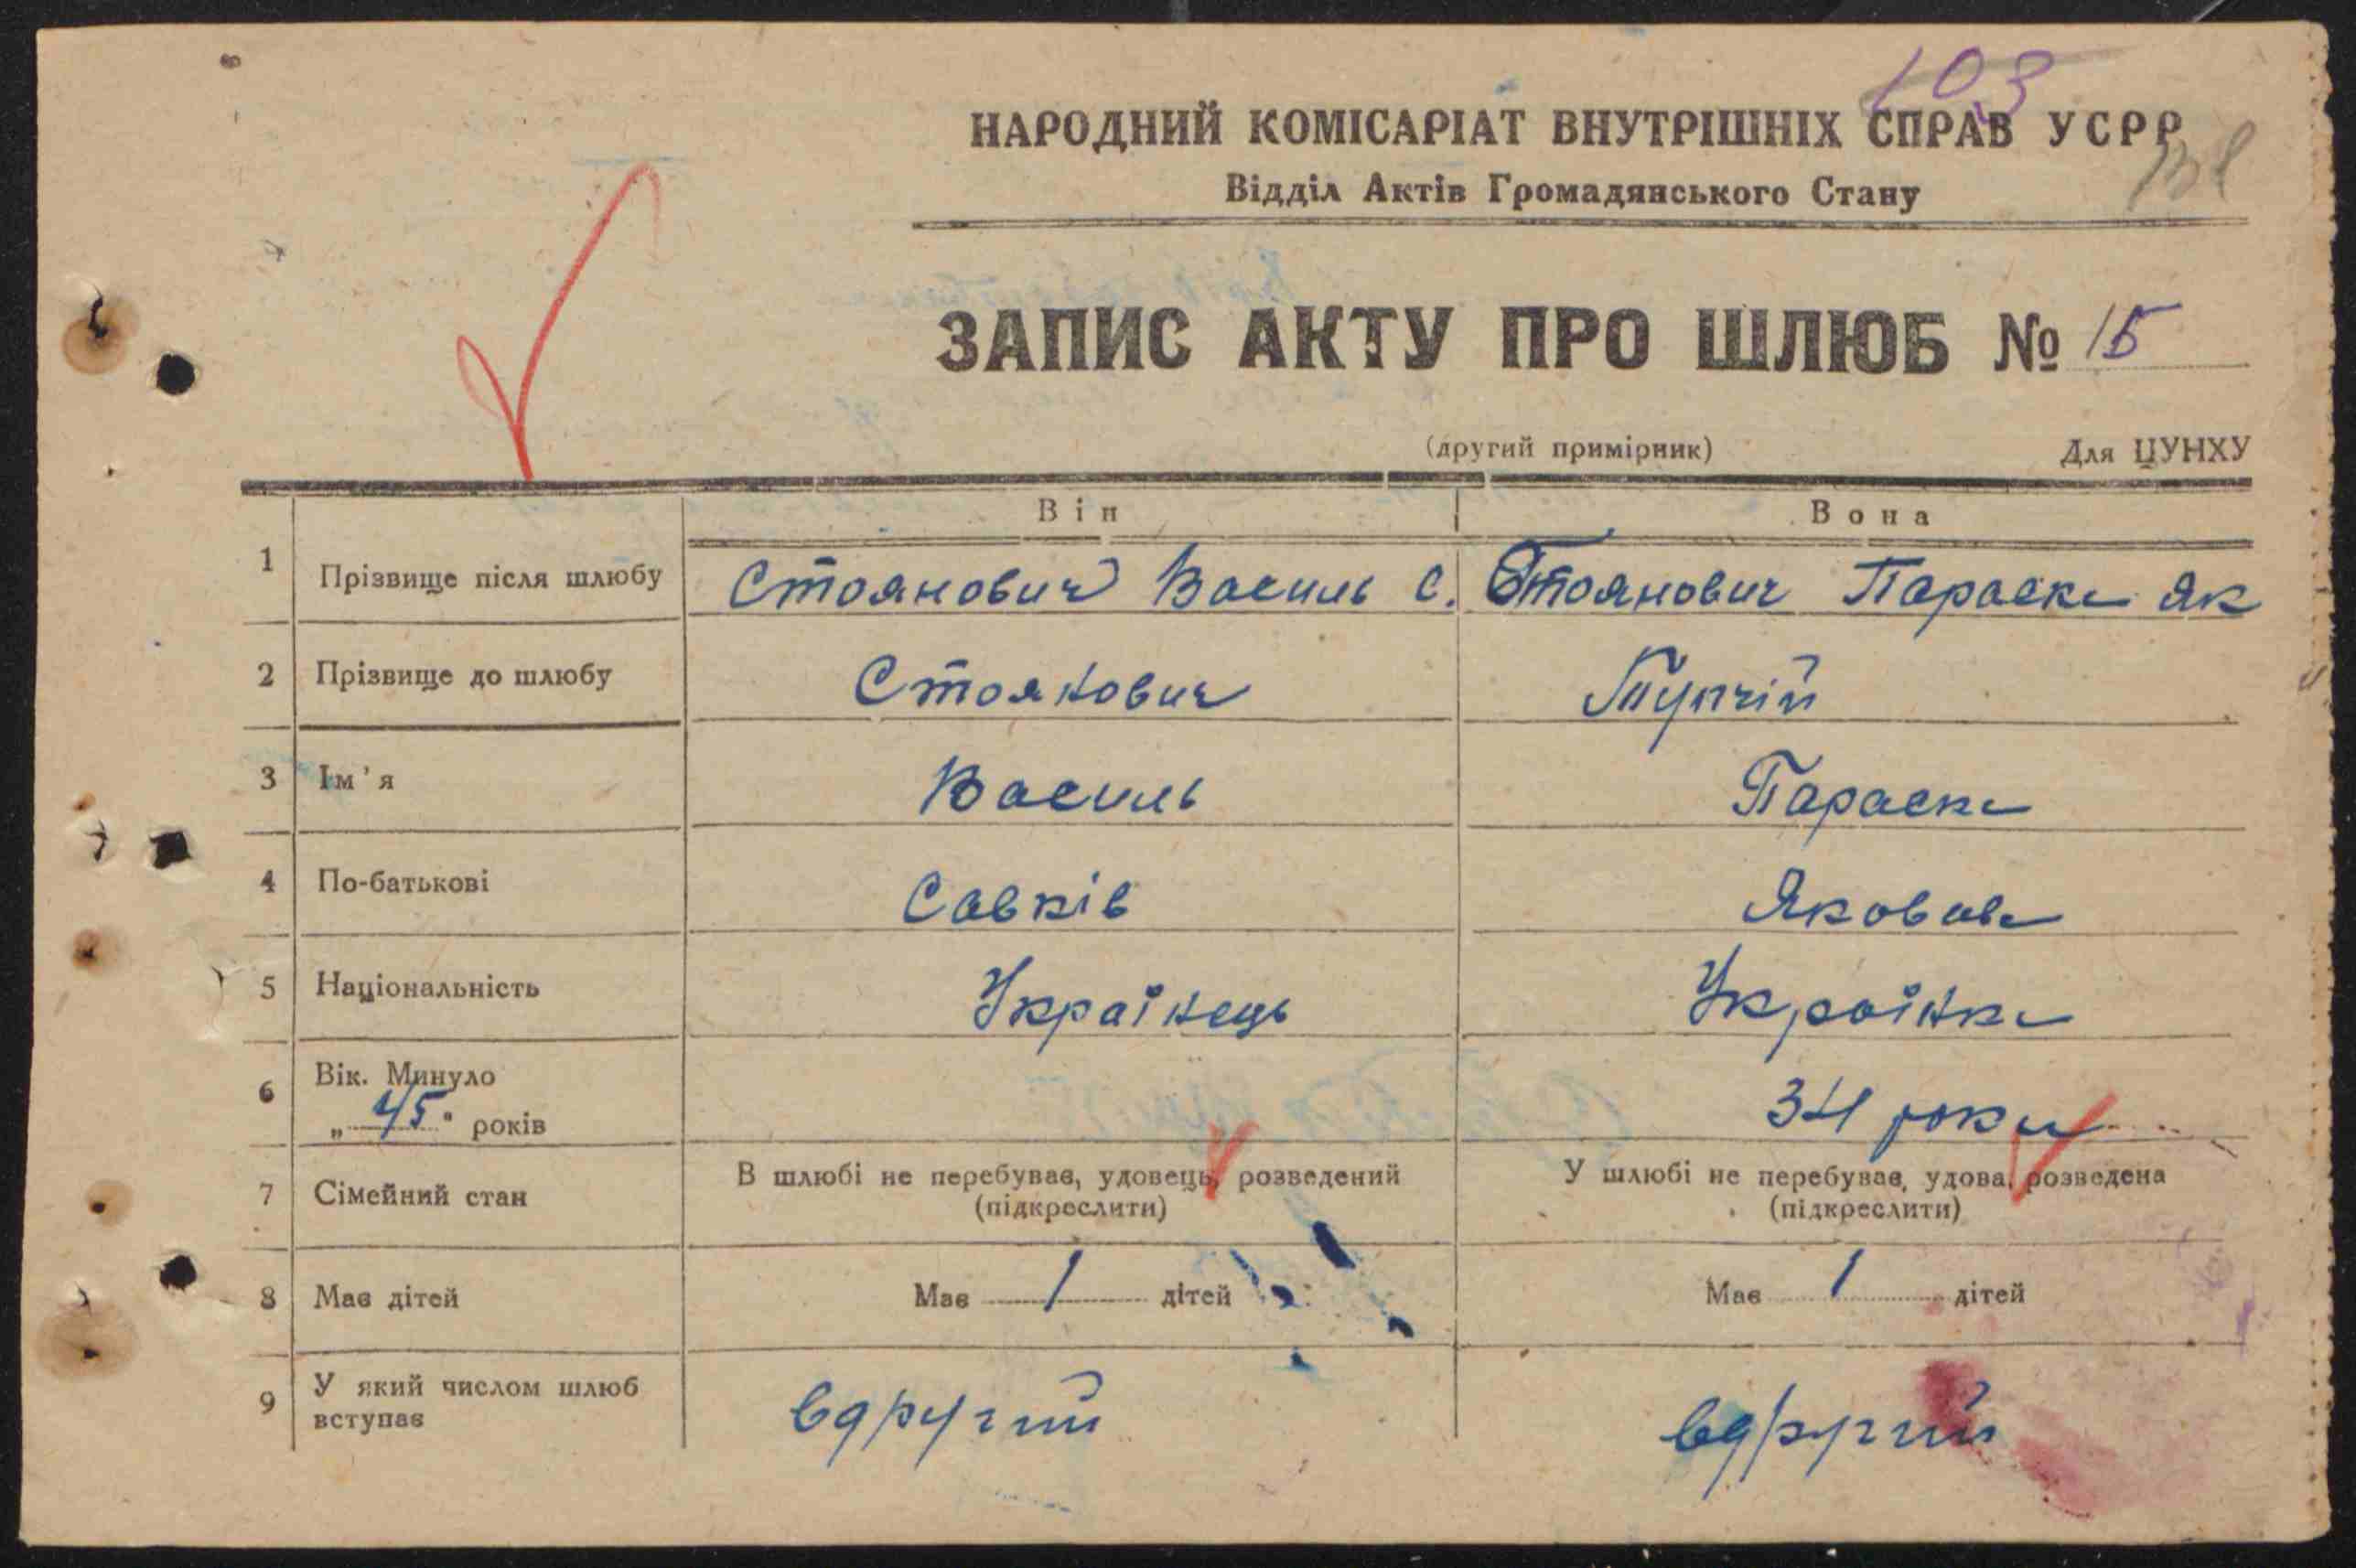 103
НАРОДНИЙ КОМІСАРІАТ ВНУТРІШНІХ СПРАВ УСРР
Відділ Актів Громадянського Стану
ЗАПИС АКТУ ПРО ШЛЮБ № 15
(другий примірник) Для ЦУНХУ
Він Вона
1 Прізвище після шлюбу Стоянович Василь С. Стоянович Параска Як
2 Прізвище до шлюбу Стоянович Тупчій
3 Ім'я Василь Параска
4 По-батькові Савків Яковова
5 Національність Українець Українка
6 Вік. Минуло
„45" років 34 роки
7 Сімейний стан В шлюбі не перебував, удовець, розведений У шлюбі не перебував, удова, розведена
(підкреслити) (підкреслити)
8 Має дітей Має 1 дітей Має 1 дітей
9 У який числом шлюб
вступає вдругий вдругий